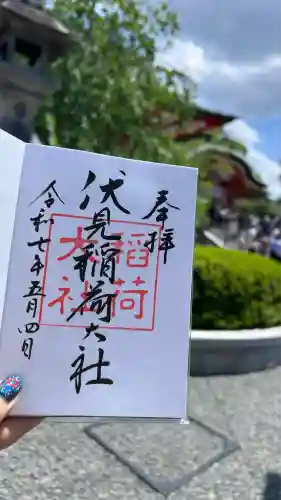 奉拝
伏見稲荷大社
令和七年五月四日
稲荷
大社